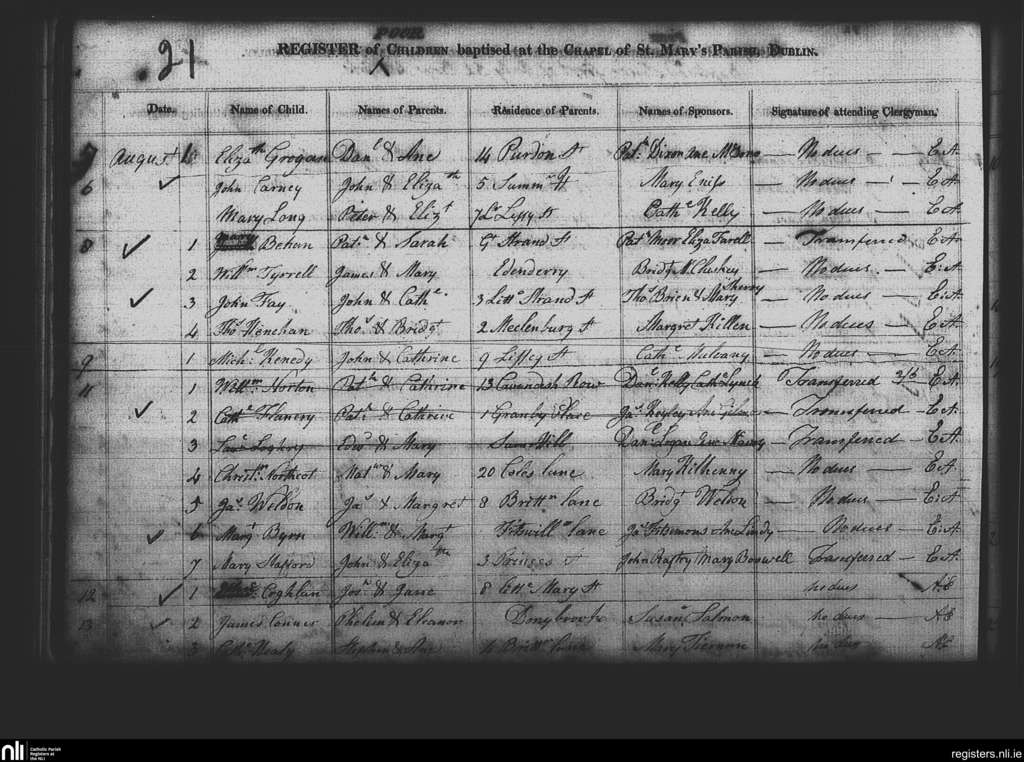 21
POOR
REGISTER of CHILDREN baptised at the CHAPEL of St. MARY'S PARISH, DUBLIN.
Date. Name of Child. Names of Parents. Residence of Parents. Names of Sponsors. Signature of attending Clergyman.
August Eliza.th Grogan Dan.l & Ane 14 Purdon St Pat.k Dixon No dues — E A
6 John Carney John & Eliza.th 5 Summ.r St Mary Enis — No dues — E A
Mary Long Peter & Eliz.t 7 L.r Leffy St Cath.e Kelly No dues — E A
8 1 Behan Pat.k & Sarah G.t Strand St Pat.k Moor Eliza Farell — Transfered E A
2 Will.m Tyrrell James & Mary Edenderry Bridg.t McCluskey — No dues — E.A
3 John Fay John & Cath.e 3 Litt.e Strand St Tho.s Brien & Mary Sherry — No dues — E.A
4 Tho.s Henehan Tho.s & Bridg.t 2 Meclenburg St Margret Killen — No dues — E.A
9 1 Mich.l Kenedy John & Cathrine 9 Liffey St Cath.e — No dues — E.A
11 1 Will.m Norton Pat.k & Cathrine 13 Cavendish Row Dan.l Kelly Cath.e Lynch — Transferred 2/6 E.A
2 Cath.e Flanery Pat.k & Cathrine 1 Granby Place Ja.s — Transferred — E.A
3 Edw.d & Mary Sum Hill Dan.l Logan — Transfered — E.A.
4 Christ.n Northcot Mat.w & Mary 20 Coles lane Mary Kilhenny — No dues — E.A
5 Ja.s Weldon Ja.s & Margret 8 Britt.n lane Bridg.t Weldon — No dues — E.A
6 Marg.t Byrn Will.m & Marg.t Fitzwill.m lane Ja.s Fitsimons Ane Lindy — No dues — E.A
7 Mary Stafford John & Eliza.th 3 Princes St John Raftry Mary Boswell Transfered — E.A
12 1 Coghlan Jos.h & Jane 8 Litt.e Mary St no dues AE
13 2 James Connor Phelim & Eleanor Donybrook Susan Salmon no dues AE
3 Cath.e Healy Stephen & Ane Britt.n lane Mary Tiernan no dues AE
nli Catholic Parish
Registers at
the NLI
registers.nli.ie